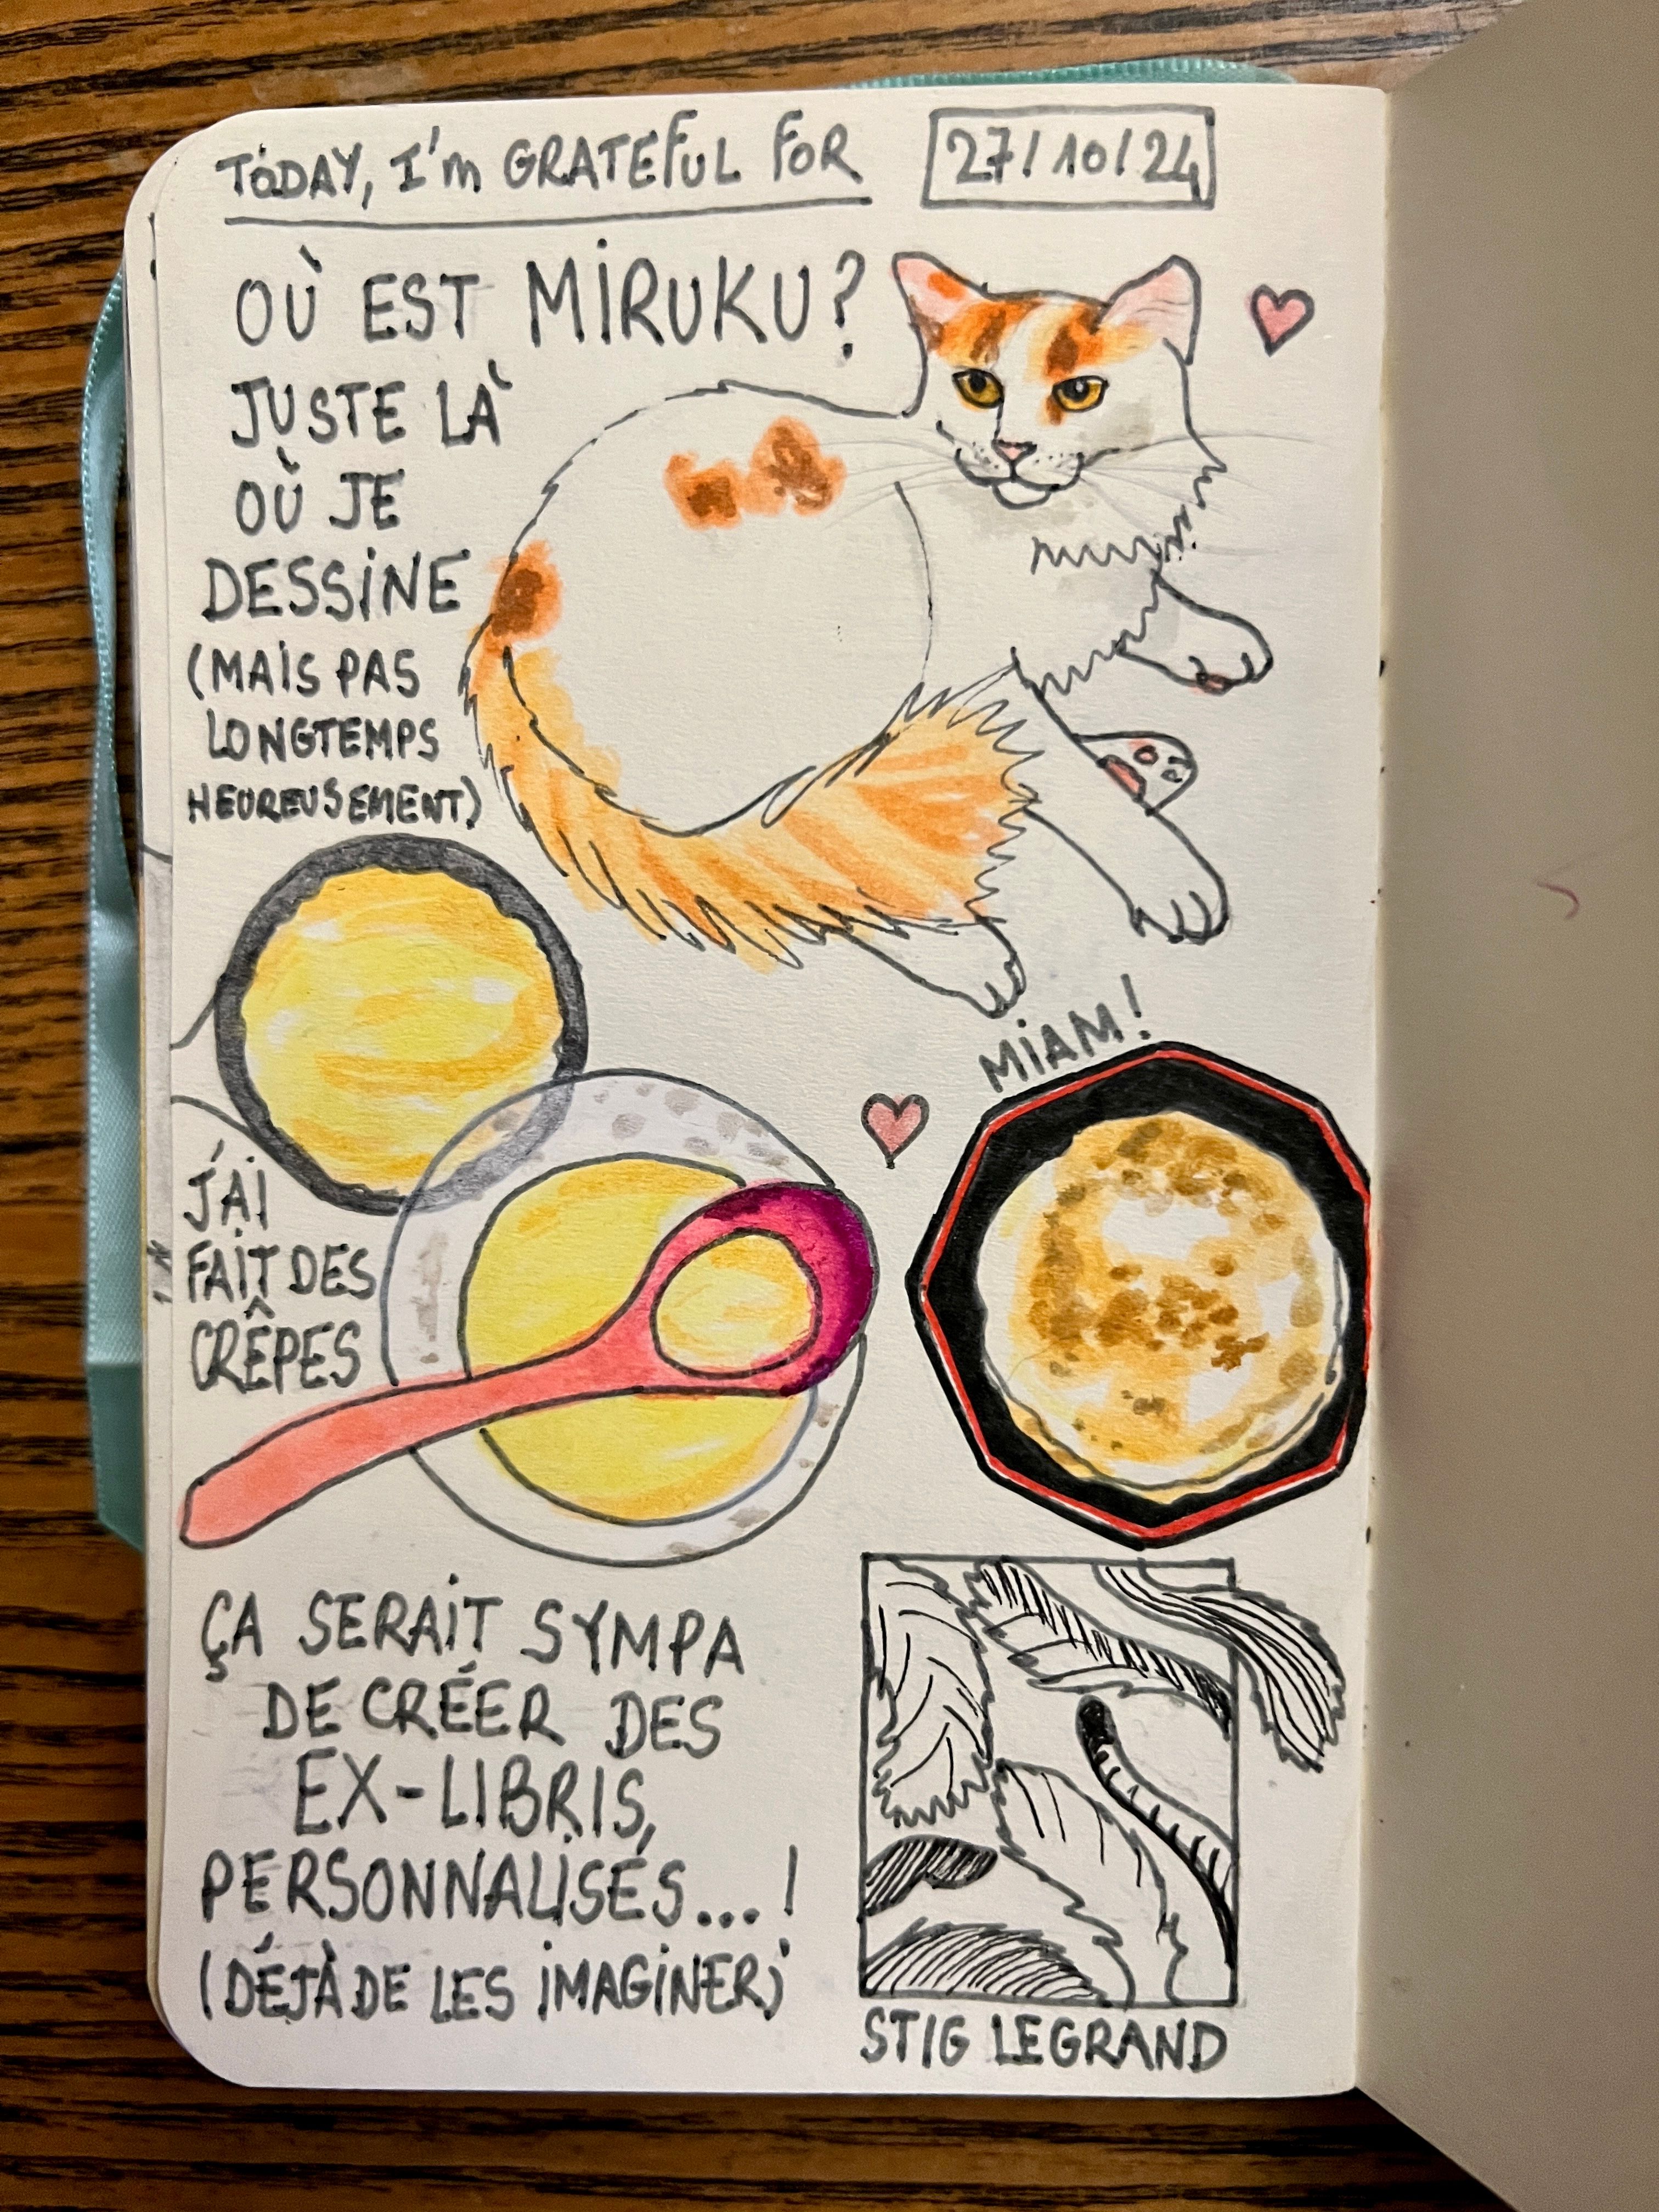 TODAY, I'm GRATEFUL FOR
27/10/24
OÙ EST MIRUKU?
JUSTE LÀ
OÙ JE
DESSINE
(MAIS PAS
LONGTEMPS
HEUREUSEMENT)
MIAM!
J'AI
FAIT DES
CRÊPES
ÇA SERAIT SYMPA
DE CRÉER DES
EX-LIBRIS,
PERSONNALISÉS...!
(DÉJÀ DE LES IMAGINER)
STIG LEGRAND